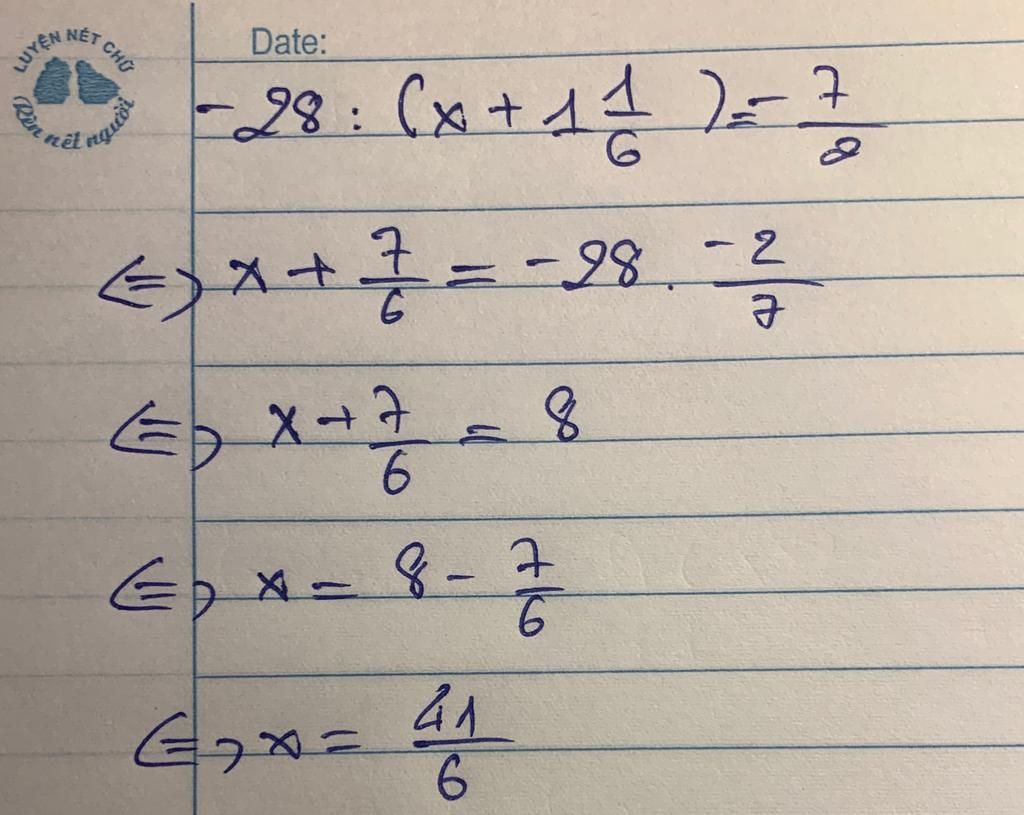 LUYỆN NÉT CHỮ
Rèn nết người
Date:
-28 : (x + 1 1/6) = - 7/2
⇔ x + 7/6 = -28 . -2/7
⇔ x + 7/6 = 8
⇔ x = 8 - 7/6
⇔ x = 41/6